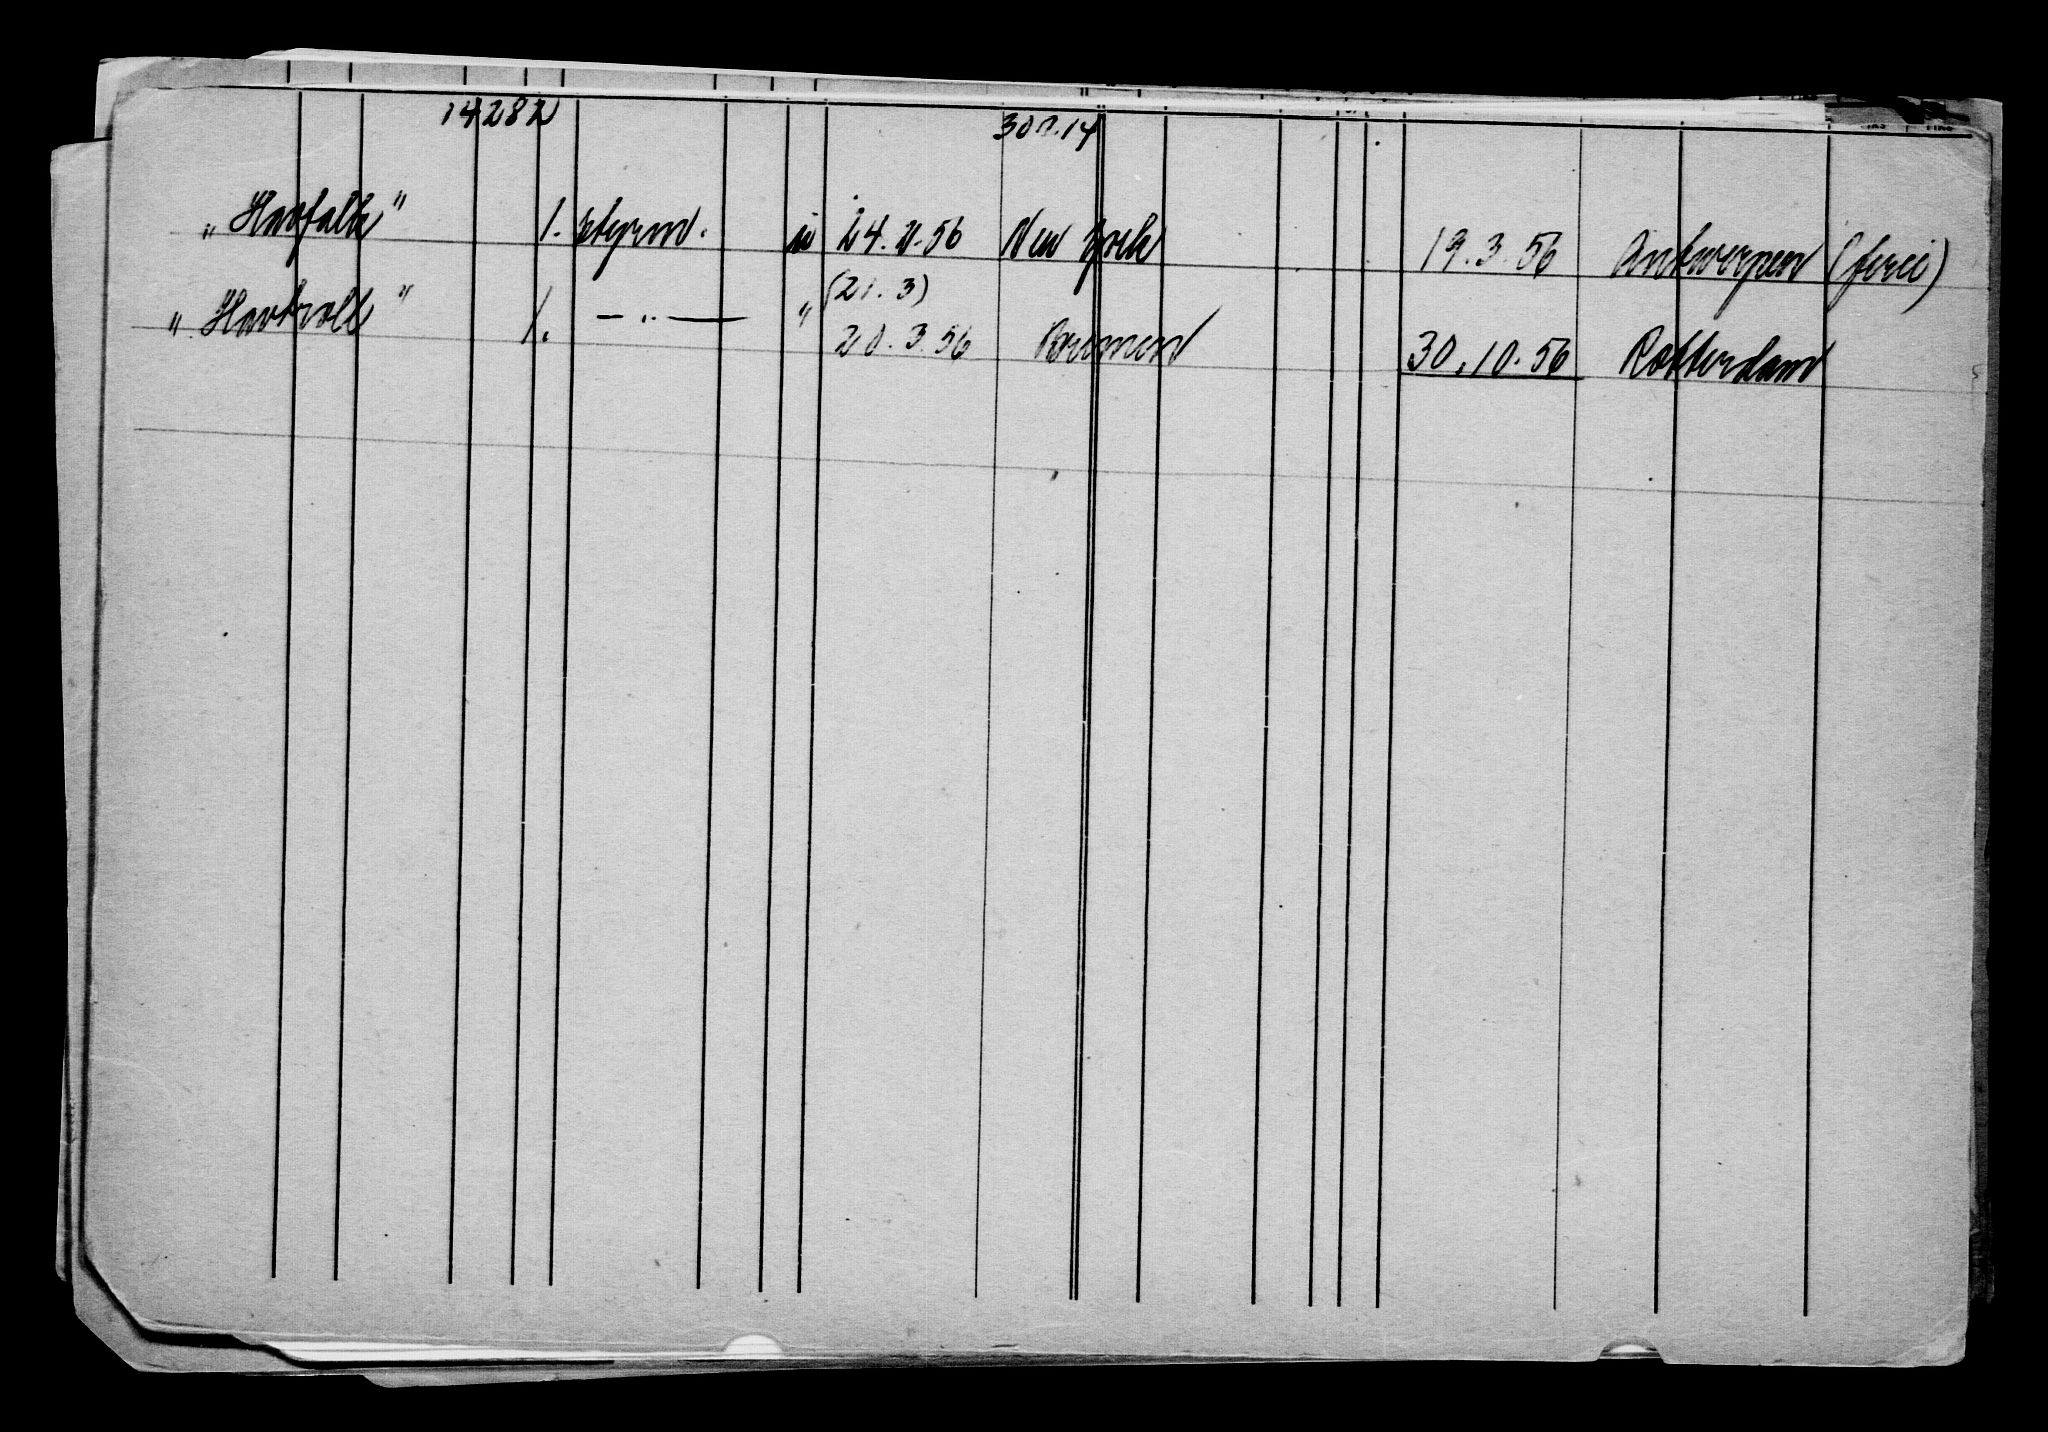 14282 300.14
„Havfalk" 1. styrm. 24.2.56 New York 19.3.56 Antwerpen (ferie)
(21.3)
„Havtroll" 1. — „ — " 20.3.56 Bremen 30.10.56 Rotterdam